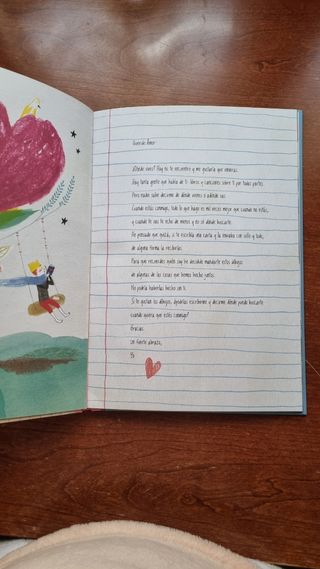 Querido Amor:
¿Dónde vives? Hoy no te encuentro y me gustaría que vinieras.
Hay tanta gente que habla de ti: libros y canciones sobre ti por todas partes.
Pero nadie sabe decirme de dónde vienes o adónde vas.
Cuando estás conmigo, todo lo que hago es mil veces mejor que cuando no estás,
y cuando te vas te echo de menos y no sé dónde buscarte.
He pensado que quizá, si te escribía una carta y la enviaba con sello y todo,
de alguna forma la recibirías.
Para que recuerdes quién soy he decidido mandarte estos dibujos
de algunas de las cosas que hemos hecho juntos.
No podría haberlas hecho sin ti.
Si te gustan los dibujos, ¿podrías escribirme y decirme dónde puedo buscarte
cuando quiera que estés conmigo?
Gracias.
Un fuerte abrazo,
Yo